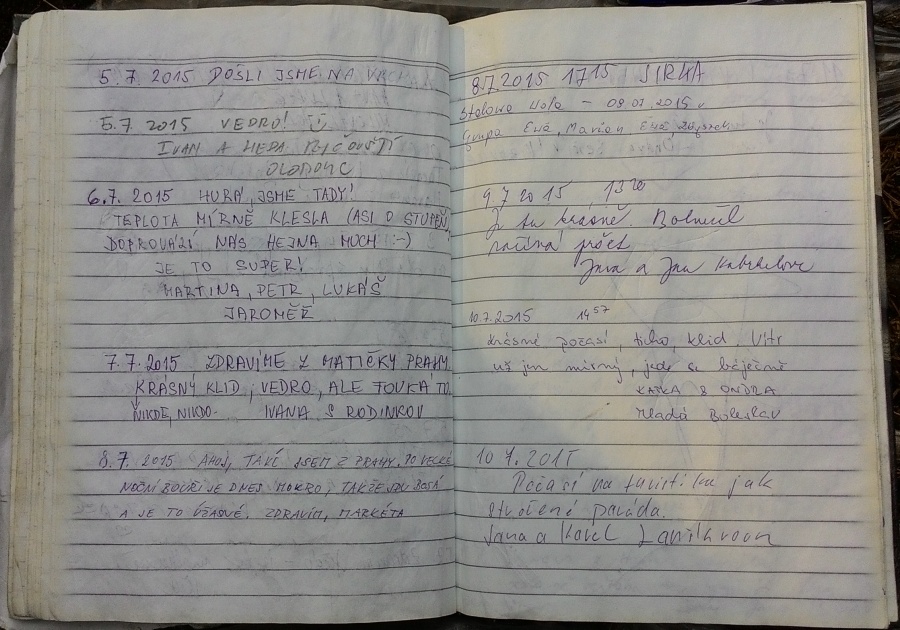 5.7.2015 DOŠLI JSME NA VRCH
5.7 2015 VEDRO! ☺
IVAN A HEDA
OLOMOUC
6.7. 2015 HURÁ, JSME TADY!
TEPLOTA MÍRNĚ KLESLA (ASI O STUPEŇ,
DOPROVÁZÍ NÁS HEJNA MUCH :-)
JE TO SUPER!
MARTINA, PETR, LUKÁŠ
JAROMĚŘ
7.7.2015 ZDRAVÍME Z MATIČKY PRAHY
KRÁSNÝ KLID, VEDRO, ALE FOUKÁ TU.
NIKDE, NIKDO. IVANA S RODINKOU
8.7.2015 AHOJ, TAKÉ JSEM Z PRAHY. PO VELKÉ
NOČNÍ BOUŘI JE DNES MOKRO, TAKŽE JDU BOSÁ
A JE TO ÚŽASNÉ. ZDRAVÍM, MARKÉTA
8.7.2015 1715 JIRKA
Stalowa Wola – 09.07.2015 r
Grupa Ewa, Marian Ewa
9.7 2015 13 20
Je tu krásně.
začíná pršet
Jana a Jan
10.7.2015 14 57
Krásné počasí, ticho, klid. Vítr
už jen mírný, jde se báječně
KATKA & ONDRA
Mladá Boleslav
10 7. 2015
Počasí na turistiku jak
stvořené paráda.
Jana a Karel Lanškroun